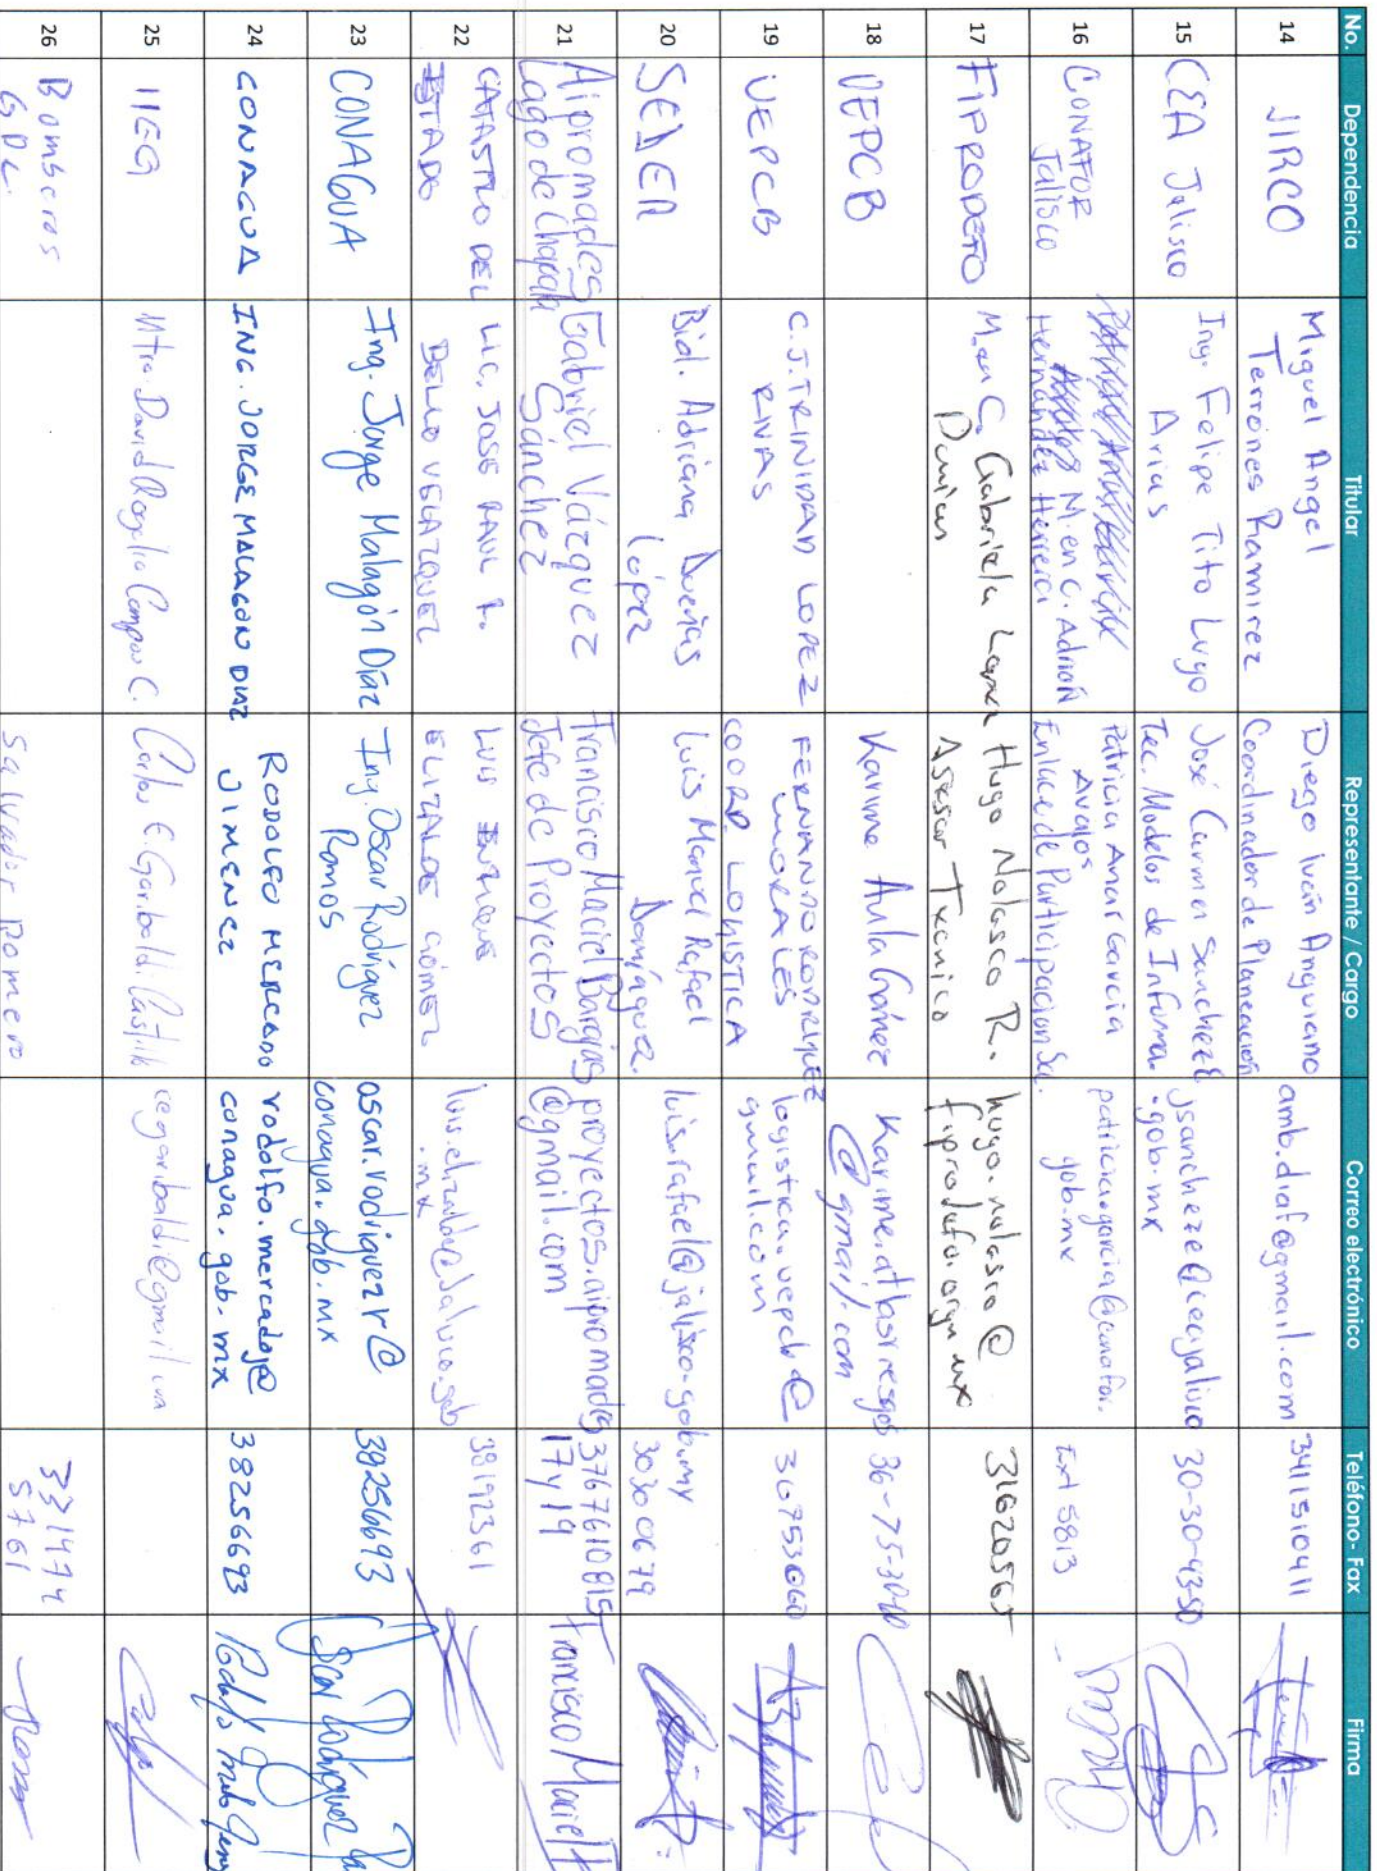 No. Dependencia Titular Representante / Cargo Correo electrónico Teléfono - Fax Firma
14 JIRCO Miguel Angel Terrones Ramirez Diego Iván Anguiano Coordinador de Planeación amb.diaf@gmail.com 3411510411
15 CEA Jalisco Ing. Felipe Tito Lugo Arias José Carmen Sanchez Tec. Modelos de Informa. jsanchez@ceajalisco.gob.mx 30-30-4350
16 CONAFOR Jalisco M. en C. Adrián Hernández Herrera Patricia Anar Garcia Avalos Enlace de Participacion Soc. patricia.garcia@conafor.gob.mx Ext 5813
17 FIPRODEFO M. en C. Gabriela Hugo Nolasco R. Asesor Tecnico hugo.nolasco@fiprodefo.org.mx 31620565
18 UEPCB Karime Avila Gómez Karime.atlasriesgos@gmail.com 36-75-3060
19 UEPCB C. J. TRINIDAD LOPEZ RIVAS FERNANDO RODRIGUEZ MORALES COORD. LOGISTICA logistica.uepcb@gmail.com 36753060
20 SEDER Biol. Adriana Dueñas López Luis Manuel Rafael Domínguez luis.rafael@jalisco.gob.mx 30300679
21 Aipromades Lago de Chapala Gabriel Vázquez Sánchez Francisco Maciel Bargas Jefe de Proyectos proyectos.aipromades@gmail.com 3767610815 17 y 19 Francisco Maciel
22 CATASTRO DEL ESTADO LIC. JOSE RAUL R. BELLO VELAZQUEZ LUIS ENRIQUE ELIZALDE GOMEZ luis.elizalde@jalisco.gob.mx 38192361
23 CONAGUA Ing. Jorge Malagón Díaz Ing. Oscar Rodríguez Ramos oscar.rodriguezr@conagua.gob.mx 38256693 Oscar Rodríguez
24 CONAGUA ING. JORGE MALAGON DIAZ RODOLFO MERCADO JIMENEZ rodolfo.mercadoj@conagua.gob.mx 38256693
25 IIEG Mtro. David Rogelio Campos C. Carlos E. Garibaldi Castillo cegaribaldi@gmail.com
26 Bomberos GDL. Salvador Romero 331474 5761